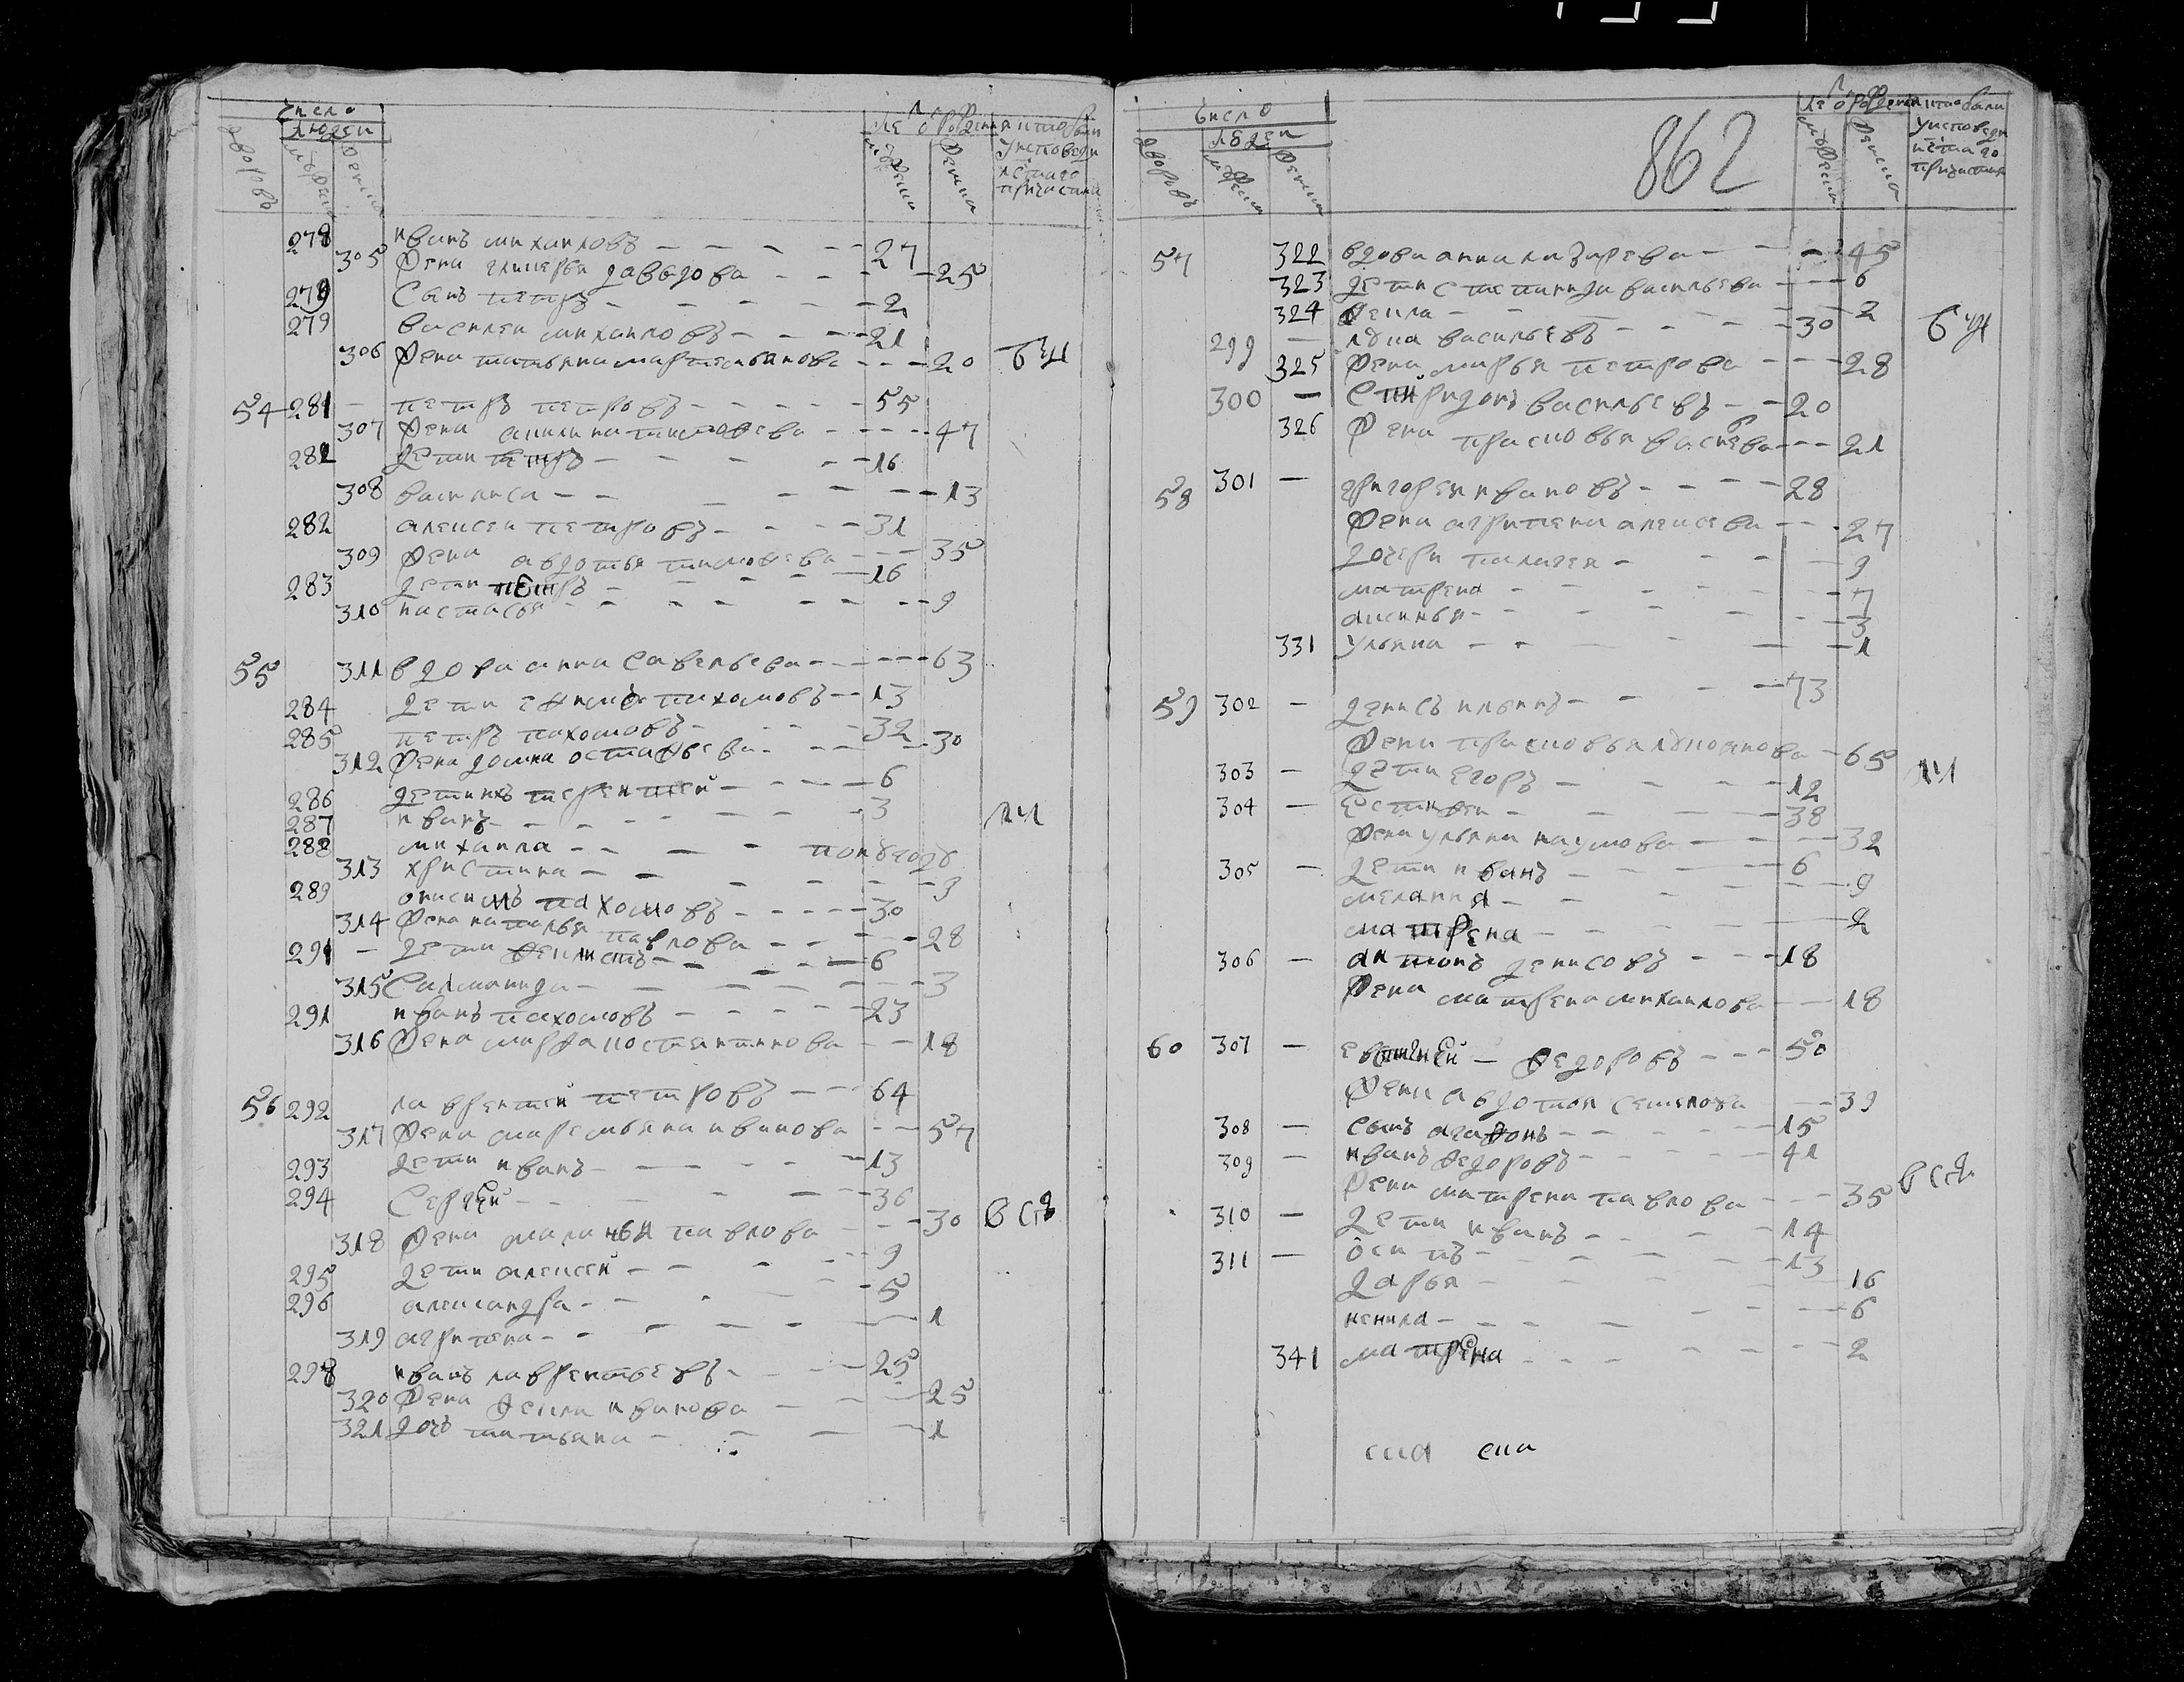 число
людей
дворовъ
мужеска
женска
лѣ о рожденя
мужеска
женска
кто были
у исповеди
и стаго
причастия
278 иванъ михаиловъ 27
305 жена гликерья давыдова 25
279 сынъ петръ 2
279 василеи михаиловъ 21
306 жена татьяна мартемьянова 20
54 281 петръ петровъ 55
307 жена акилина тимофеева 47
282 дети петръ 16
308 василиса 13
282 алексеи петровъ 31
309 жена авдотья тимофеева 35
283 дети петръ 16
310 настасья 9
55 311 вдова анна савельева 63
284 дети ефимъ пахомовъ 13
285 петръ пахомовъ 32
312 жена домна остафьева 30
286 дети ихъ терентей 6
287 иванъ 3
288 михаила полугоду
313 христина 3
289 онисимъ пахомовъ 30
314 жена наталья павлова 28
291 дети феклистъ 6
315 саломонида 3
291 иванъ пахомовъ 23
316 жена марфа костентинова 18
56 292 лаврентей петровъ 64
317 жена маремьяна иванова 57
293 дети иванъ 13
294 сергей 36
318 жена маланья павлова 30
295 дети алексей 9
296 александра 5
319 агрипена 1
298 иванъ лаврентьевъ 25
320 жена фекла иванова 25
321 дочь татьяна 1
862
число
людеи
дворовъ
мужеска
женска
лѣ о рождения
мужеска
женска
кто были
у исповеди
и стаго
причастия
57 322 вдова анна лазарева 45
323 дети степанида васильева 6
324 фекла 2
299 лука васильевъ 30
325 жена марья петрова 28
300 спиридонъ васильевъ 20
326 жена прасковья васиева 21
58 301 григореи ивановъ 28
жена агрипена алексева 27
дочери палагея 9
матрена 7
аксинья 3
331 ульяна 1
59 302 денисъ ильинъ 73
жена прасковья лукоянова 65
303 дети егоръ 12
304 естифеи 38
жена ульяна наумова 32
305 дети иванъ 6
меланиа 9
матрена 2
306 антонъ денисовъ 18
жена матрена михаилова 18
60 307 федоровъ 50
жена авдотья семенова 39
308 сынъ агафонъ 15
309 иванъ федоровъ 41
жена матрена павлова 35
310 дети иванъ 14
311 осипъ 13
дарья 16
ненила 6
341 матрена 2